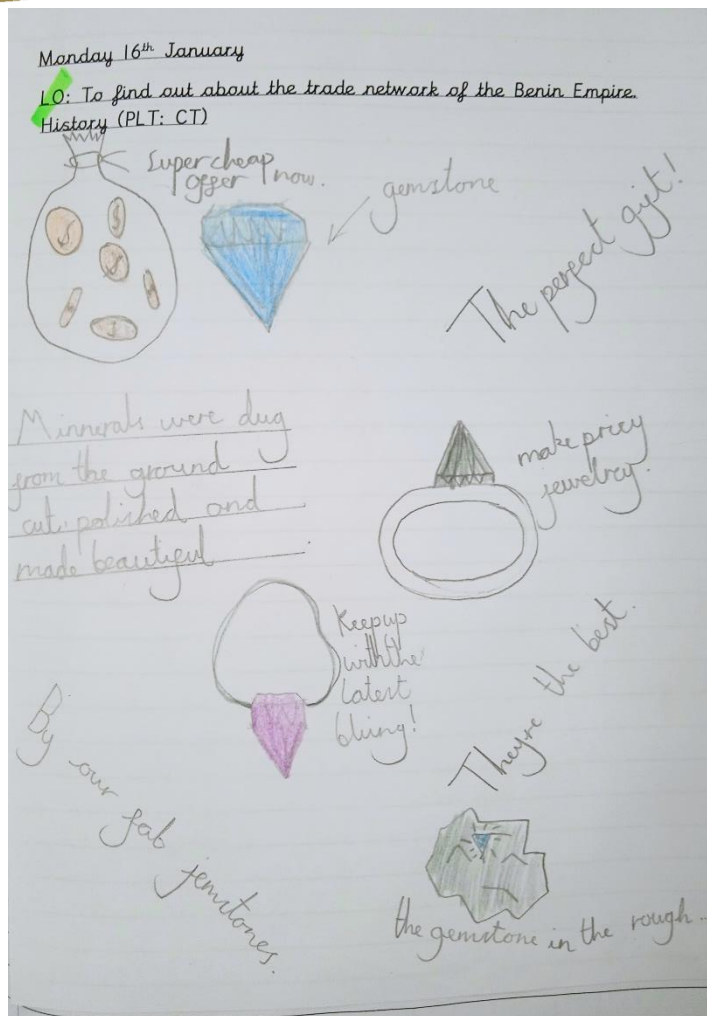 Monday 16th January
LO: To find out about the trade network of the Benin Empire.
History (PLT: CT)
Super cheap
offer now.
gemstone
The perfect gift!
$
$
$
$
Minnerals were dug
from the ground
cut, polished and
made beautiful
make pricy
jewelry.
Keep up
with the
latest
bling!
They're the best.
By our fab jemstones.
the gemstone in the rough..